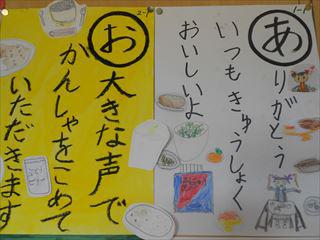 1-1
ありがとう
いつもきゅうしょく
おいしいよ
2-1
お大きな声で
かんしゃをこめて
いただきます